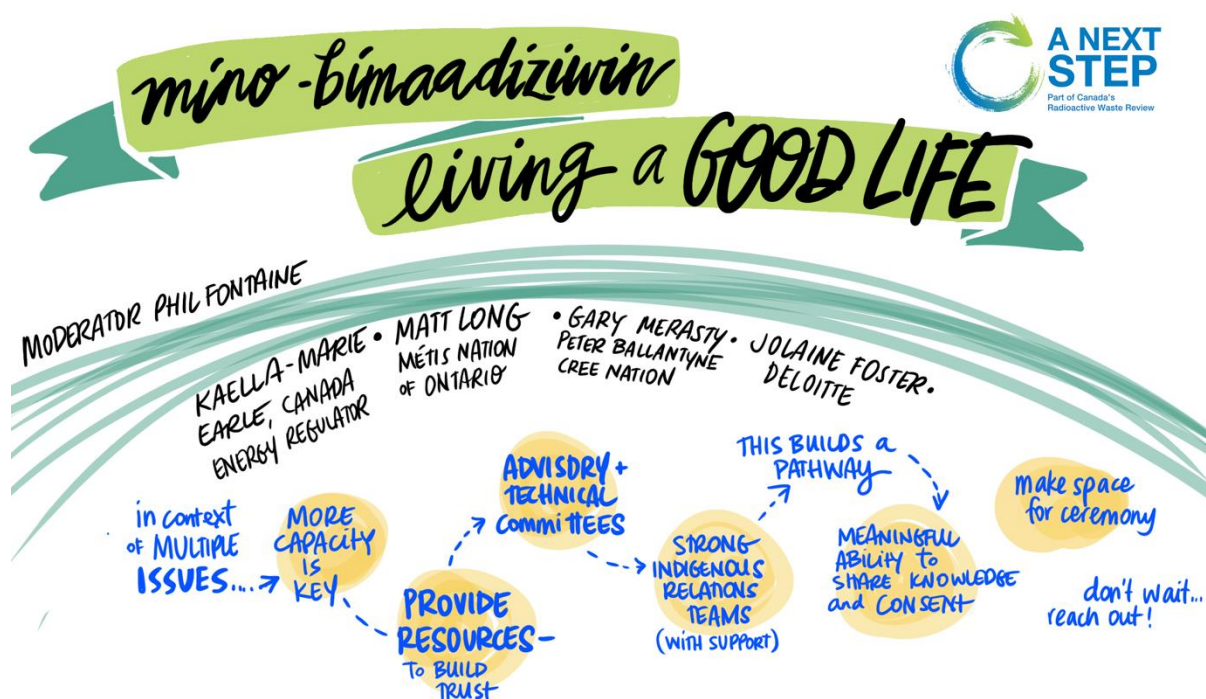 mino-bimaadiziwin
living a GOOD LIFE
A NEXT
STEP
Part of Canada's
Radioactive Waste Review
MODERATOR PHIL FONTAINE
KAELLA-MARIE •
EARLE, CANADA
ENERGY REGULATOR
MATT LONG
MÉTIS NATION
OF ONTARIO
• GARY MERASTY •
PETER BALLANTYNE
CREE NATION
JOLAINE FOSTER •
DELOITTE
in context
of MULTIPLE
ISSUES....
MORE
CAPACITY
IS
KEY
PROVIDE
RESOURCES—
TO BUILD
TRUST
ADVISORY +
TECHNICAL
COMMITTEES
STRONG
INDIGENOUS
RELATIONS
TEAMS
(WITH SUPPORT)
THIS BUILDS a
PATHWAY
MEANINGFUL
ABILITY to
SHARE KNOWLEDGE
and CONSENT
make space
for ceremony
don't wait...
reach out!